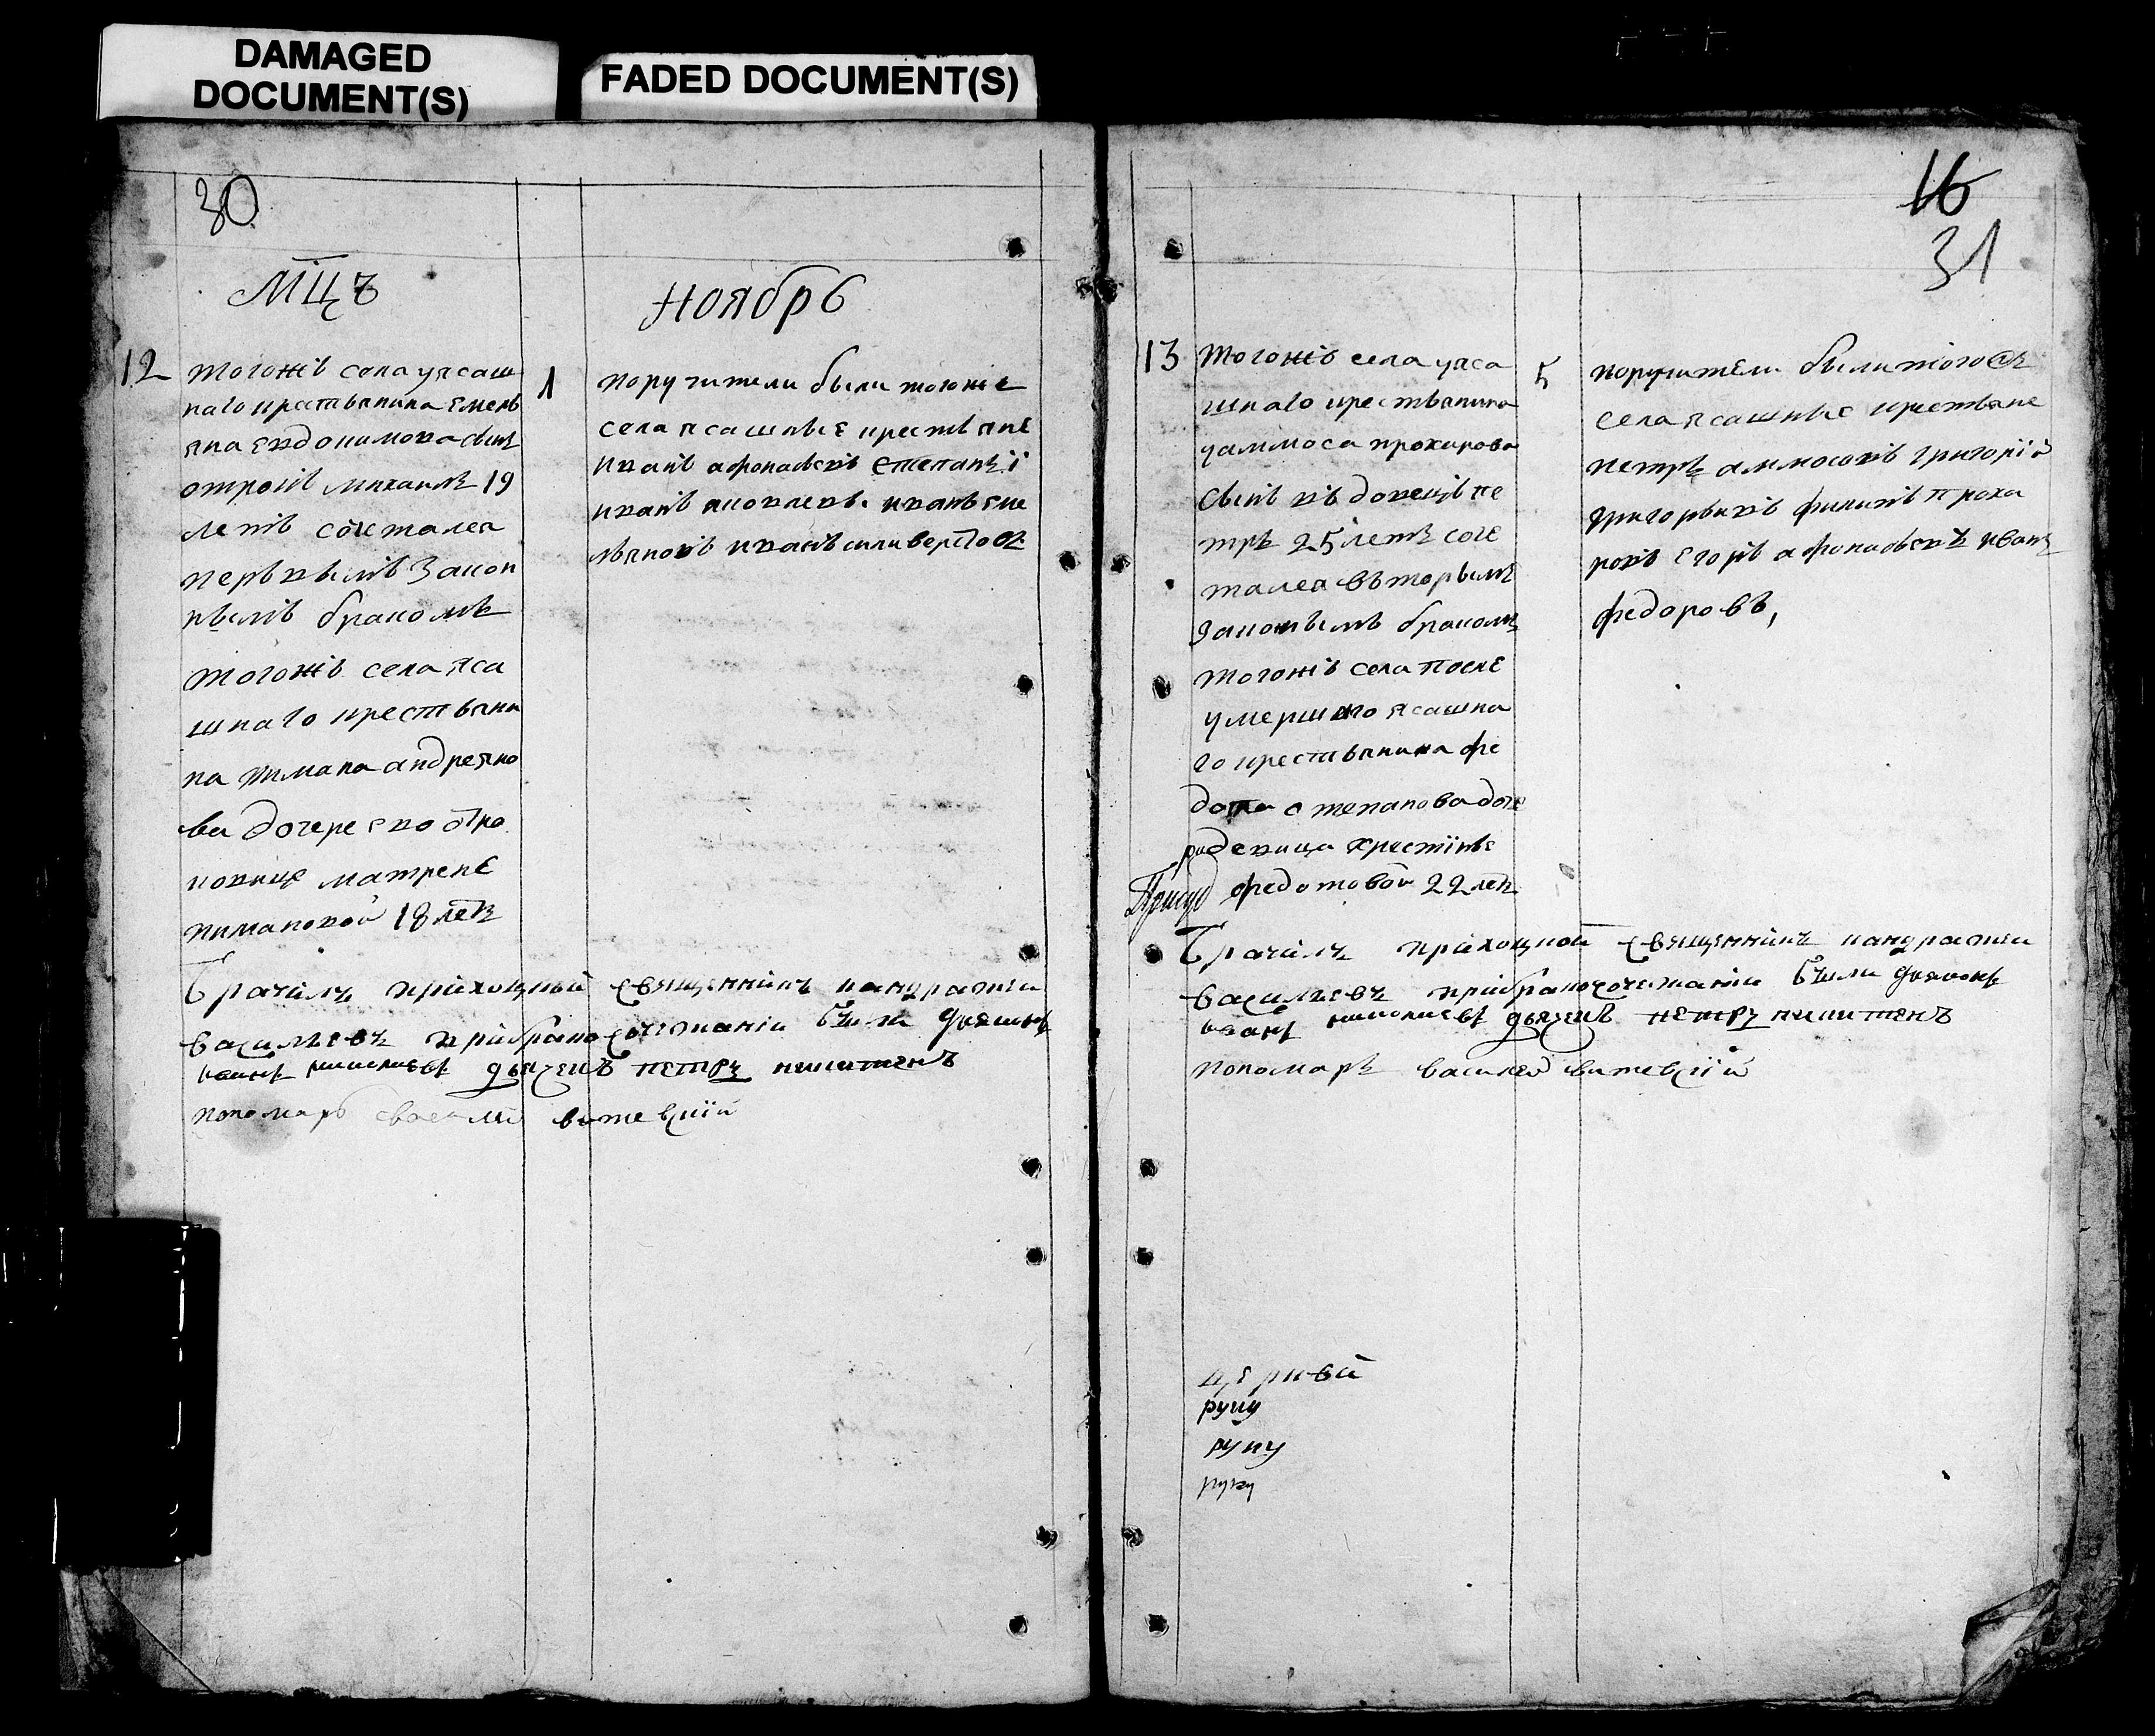 DAMAGED
DOCUMENT(S)
FADED DOCUMENT(S)
30
МЦЪ
ноябрь
12
тогожъ села уясаш
наго крестьянина емель
яна евдокимова сынъ
отрокъ михаилъ 19
летъ сочетался
первымъ закон
нымъ бракомъ
тогожъ села яса
шнаго крестьяни
на тимана андреяно
ва дочерею отро
ковице матрене
тимановой 18 летъ
1
поручители были тогоже
села ясашные крестьяне
иванъ афонасьевъ степанъ и
иванъ яковлевъ иванъ еме
льяновъ иванъ силиверстовъ
Брачилъ приходцкой священникъ кандратеи
васильевъ прибракосочетании были дьяконъ
иванъ николаевъ дьячекъ петръ никитенъ
пономарь василей витевский
16
31
13
тогожъ села уяса
шнаго крестьянина
уаммоса прохорова
сынъ въдовецъ пе
тръ 25 летъ соче
тался въторымъ
законнымъ бракомъ
тогожъ села после
умершаго ясашна
го крестьянина фе
дота степанова доче
рю девица христине
федотовой 22 летъ
5
поручители были тогожъ
села ясашные крестьяне
петръ аммосовъ григорий
григорьивъ филипъ проха
ровъ егоръ афонасьевъ иванъ
федоровъ,
Брачилъ приходцкой священникъ кандратеи
васильевъ прибракосочетании были дьяконъ
иванъ николаевъ дьячекъ петръ никитенъ
пономаръ василей витевский
церквой
руку
руку
руку